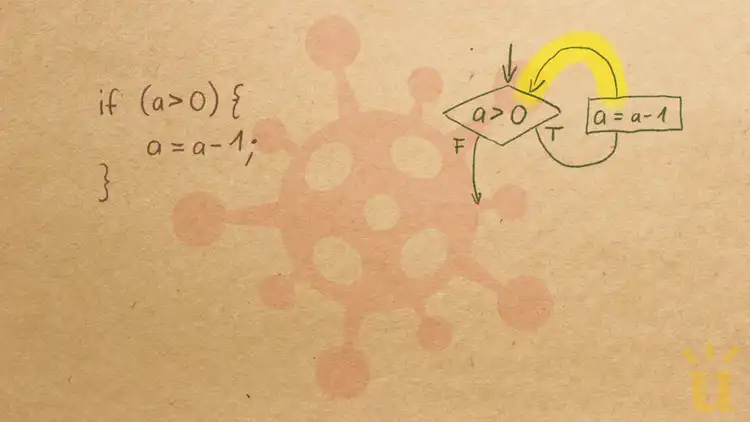 if (a>0) {
a=a-1;
}
a>0
F
T
a=a-1
u